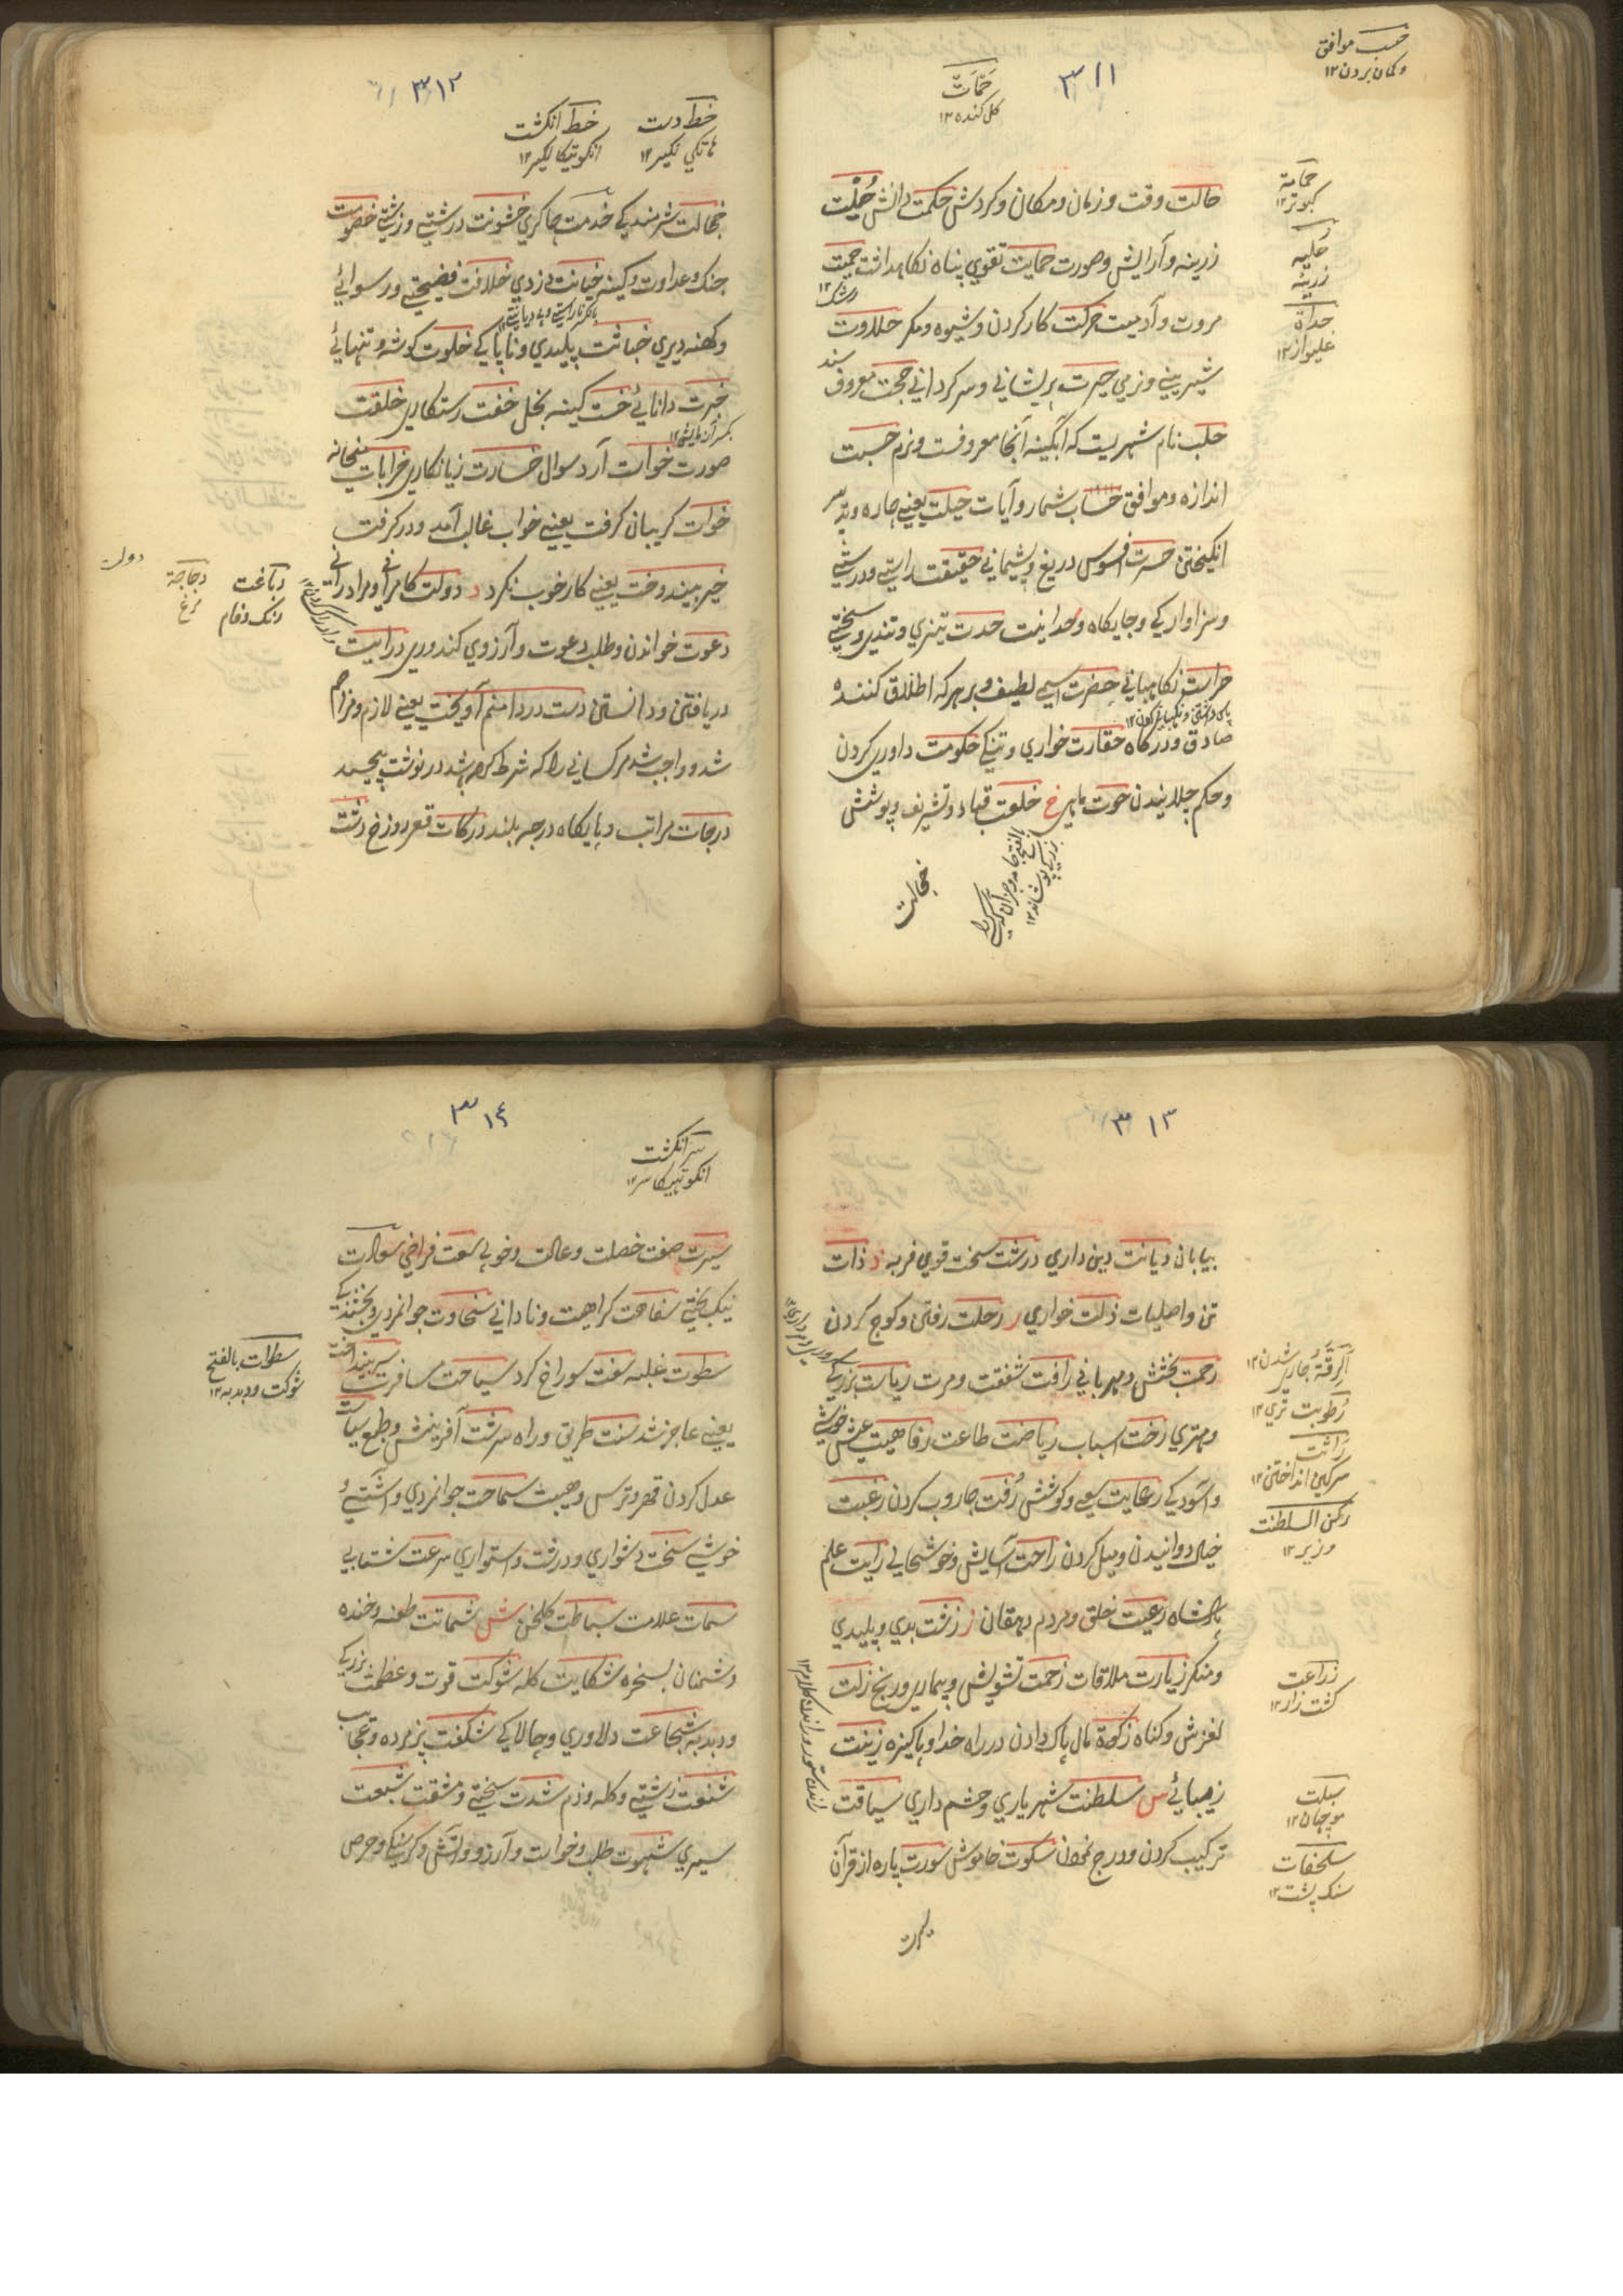 ۳۱۱
حسب موافق
و کمان بردن ۱۲
کل کنده ۱۲
حمامة
کبوتر ۱۲
حلیه
زرینه
حداة
غلیواز ۱۲
حالت وقت و زمان و مکان و کردش حکمت دانش حُلیت
زرینه و آرایش و صورت حمایت تقوي پناه نکاهداشت حمیت
رشک ۱۲
مروت و آدمیت حرکت کار کردن و شیوه و مکر حلاوت
شیرینے و نرمي حیرت پریشاني و سرکرداني حجت معروف
سند
حلب نام شهریست که آبکینه آنجا معروفست و نرم حسبت
اندازه و موافق حساب شمار و آیات حیلت یعنے چاره و تدبیر
انکیختن حسرت افسوس دریغ و پشیماني حقیقت راستے و درستے
و سزاوارکي و جایکاه وحدانیت حدت تیزي و تندي و سختے
حراست نکاهباني حضرت اسمے لطیف و بر هر که اطلاق کننده
صادق و درکاه حقارت خواري و تنکے حکومت داوري کردن
و حکم چلانیدن حوت ماهي خ خلعت قباد و تشریف و پوشش
خجالت
۳۱۲
خط دست
هاتکي لکیر ۱۲
خط انکشت
انکوتیکا لکیر ۱۲
خجالت شرمندکے خدمت چاکري خشونت درشتے و زشتے خصومت
جنک و عداوت و کینه خیانت دزدي خلافت فضیحتے و رسوائے
و کهنه دیري خباثت پلیدي و ناپاکے خلوت کوشه و تنهائے
خبرت دانائے خست کینه بخل خفت رستکاري خلقت
صورت خواست آرد سوال خسارت زیانکاري خرابات میخانه
خوابت کریبان کرفت یعنے خواب غالب آمد و در کرفت
خیر بیندوخت یعنے کار خوب نکرد د دولت کامراني و مراد راني
دعوت خواندن و طلب دعوت و آرزوي کندوري درایت
دریافتن و دانستن دست در دامنم آویخت یعنے لازم و مزاحم
شد و واجب شد مر کساني را که شرط کرده شد در نوشت پیچید
درجات مراتب و پایکاه درجه بلند درکات قعر دوزخ دشت
دباغت
رنک و فام
دجاجة
مرغ
دولت
۳۱۳
بیابان دیانت دین داري درشت سخت قوي فربه ذ ذات
تن و اصلیات ذلت خواري ر رحلت رفتن و کوچ کردن
رحمت بخشش و مهرباني رافت شفقت و مرت ریاست بزرکے
و مهتري رخت اسباب ریاضت طاعت رفاهیت عیش خوشے
و آسودکے رعایت سعي و کوشش رُفت جاروب کردن رغبت
خیال دوانیدن و میل کردن راحت آسایش و خوشحالے رایت علم
پادشاه رعیت خلق و مردم دهقان ز زشت بدي و پلیدي
و منکر زیارت ملاقات زحمت تشویش و بیماري و رنج زلت
لغزش و کناه زکوة مال پاک دادن در راه خدا و پاکیزه زینت
زیبائے س سلطنت شهریاري و حشم داري سیاقت
ترکیب کردن و درج نمودن سکوت خاموشي سورت پاره از قرآن
سیرت
رطوبت تري ۱۲
سرکین انداختن ۱۲
رکن السلطنت
وزیر ۱۲
زراعت
کشت زار ۱۲
سبلت
موچهان ۱۲
سلحفات
سنک پشت ۱۲
۳۱۴
سر انکشت
انکوتهیکا سر ۱۲
سیرت صفت خصلت و عادت و خوبے سعت فراخي سعادت
نیک بختے سفاهت کراهیت و ناداني سخاوت جوانمردي و بخشندکے
سطوت غلبه سفت سوراخ کرد سیاحت مسافرت سپر بینداخت
یعنے عاجز شد سنت طریق و راه سرشت آفرینش و طبع سیاست
عدل کردن قهر و ترس و هیبت سماحت جوانمردي و آشتے و
خوشے سخت دشواري و درشت و استواري سرعت شتابے
سمات علامت سباطت کلخن ش شماتت طعنه و خنده
دشمنان بسخره شکایت کله شوکت قوت و عظمت بزرکے
و دبدبه شجاعت دلاوري و چالاکے شکفت پژمرده و تعجب
شنعت زشتے و کله و ذم شدت سختے و مشقت شبعت
سیري شهوت طلب و خواست و آرزو و آتش و کرسنکے و حرص
سطوات بالفتح
شوکت و دبدبه ۱۲